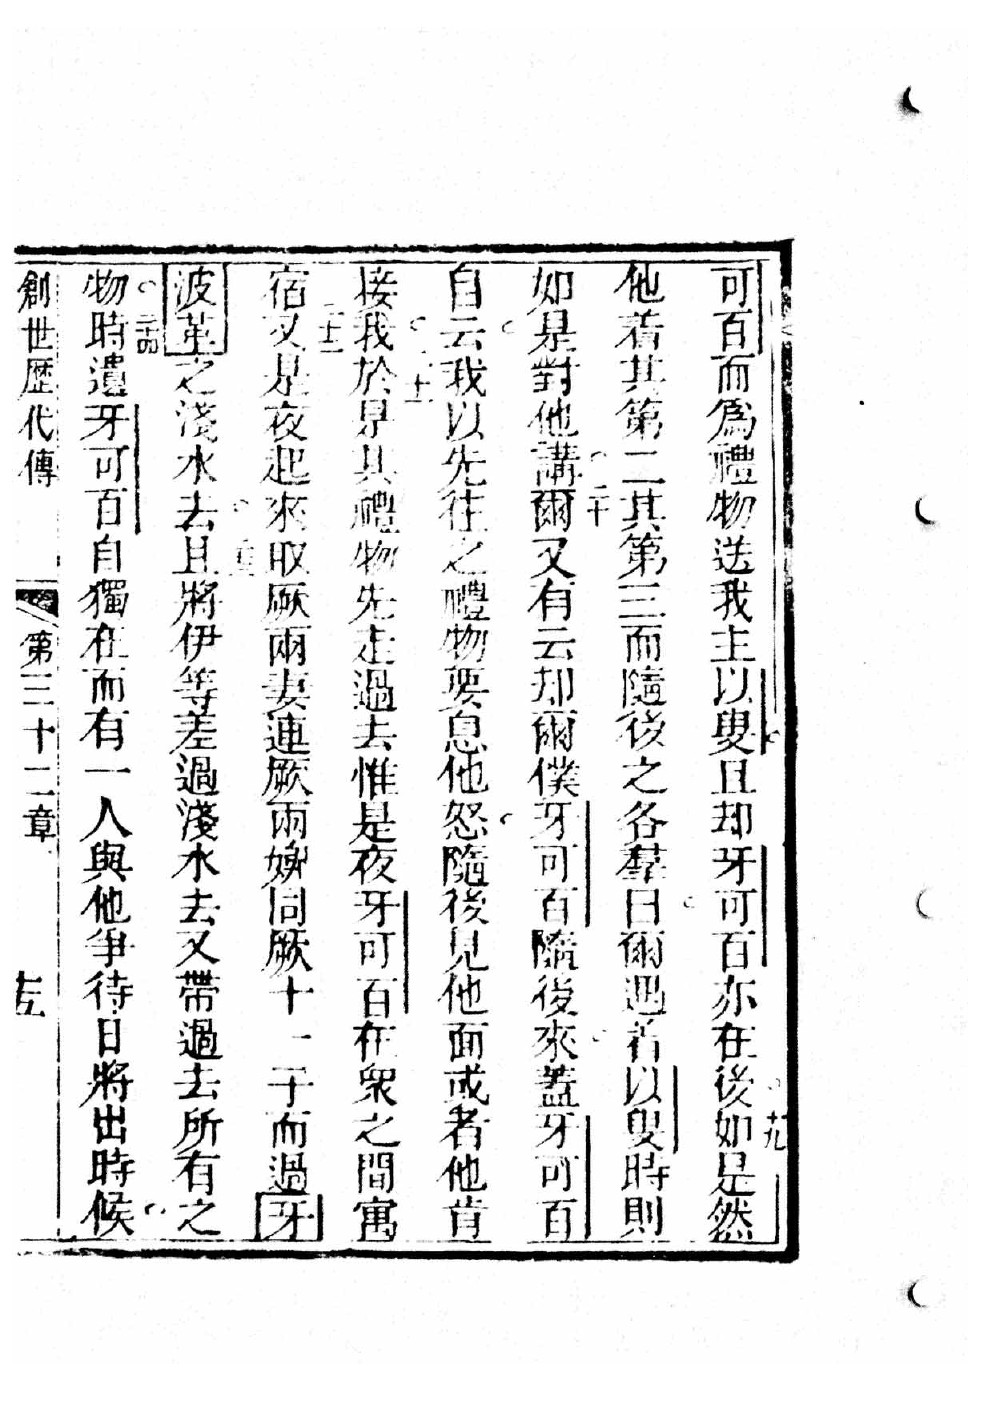 可百而爲禮物送我主以叟且却牙可百亦在後如是然
十九
他着其第二其第三而隨後之各羣曰爾遇着以叟時則
如是對他講爾又有云却爾僕牙可百隨後來蓋牙可百
二十
自云我以先往之禮物要息他怒隨後見他面或者他肯
接我於是其禮物先走過去惟是夜牙可百在衆之間寓
宿又是夜起來取厥兩妻連厥兩婢同厥十一子而過牙
波革之淺水去且將伊等差過淺水去又帶過去所有之
物時遺牙可百自獨在而有一人與他爭待日將出時候
二十四
創世歷代傳
第三十二章